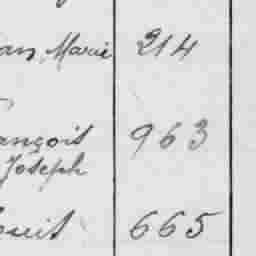 an Marie 214
ançois 963
Joseph
ouis 665